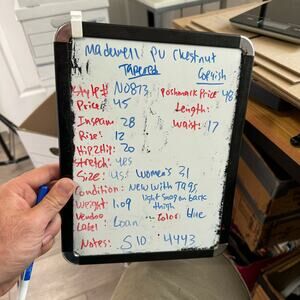 Madewell PV Chestnut
Tapered
Style# N0873
Poshmark Price 48
Price: 45
Length:
Inseam 28
Waist: 17
Rise: 12
Hip2Hip: 20
Stretch: yes
Size: Women's 31
Condition: New with Tags,
light snag on back
thigh
Weight 1.09
Vendoo
Label: Loan
Color: blue
Notes: S10 4443